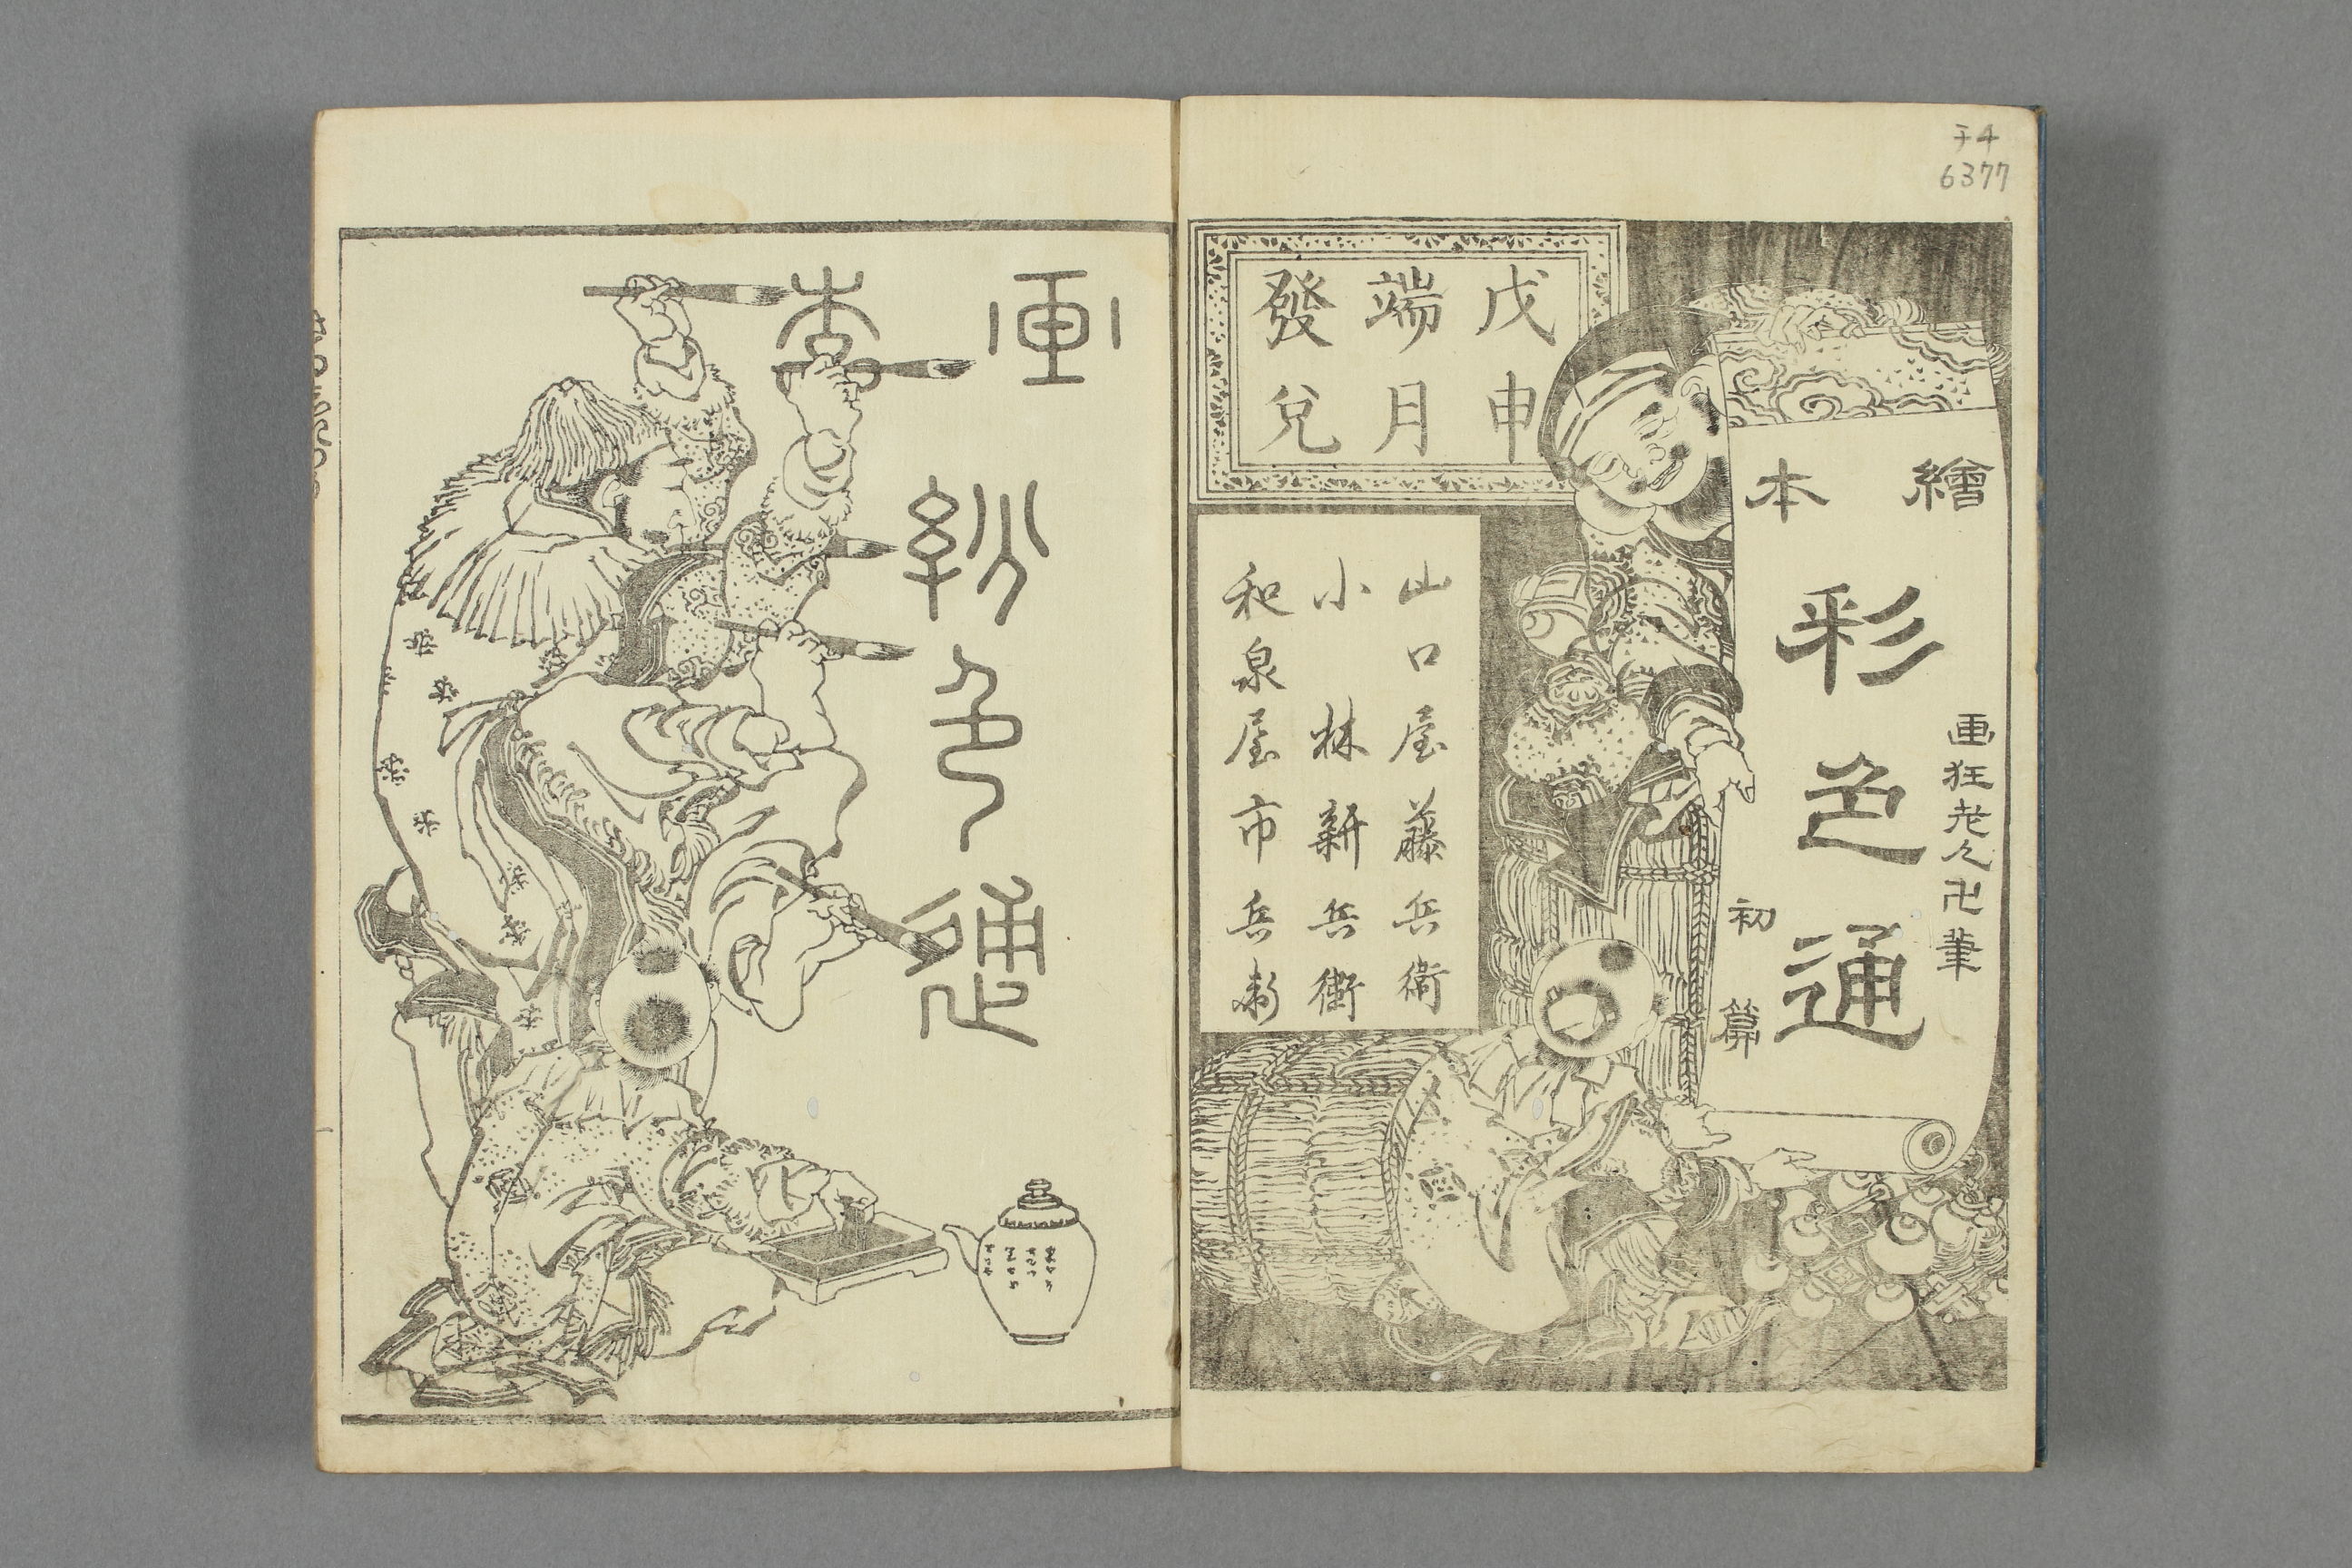 チ4
6377
繪本
彩色通
画狂老人卍筆
初篇
戊申
端月
發兌
山口屋藤兵衛
小林新兵衛
和泉屋市兵衛
画本
彩色通